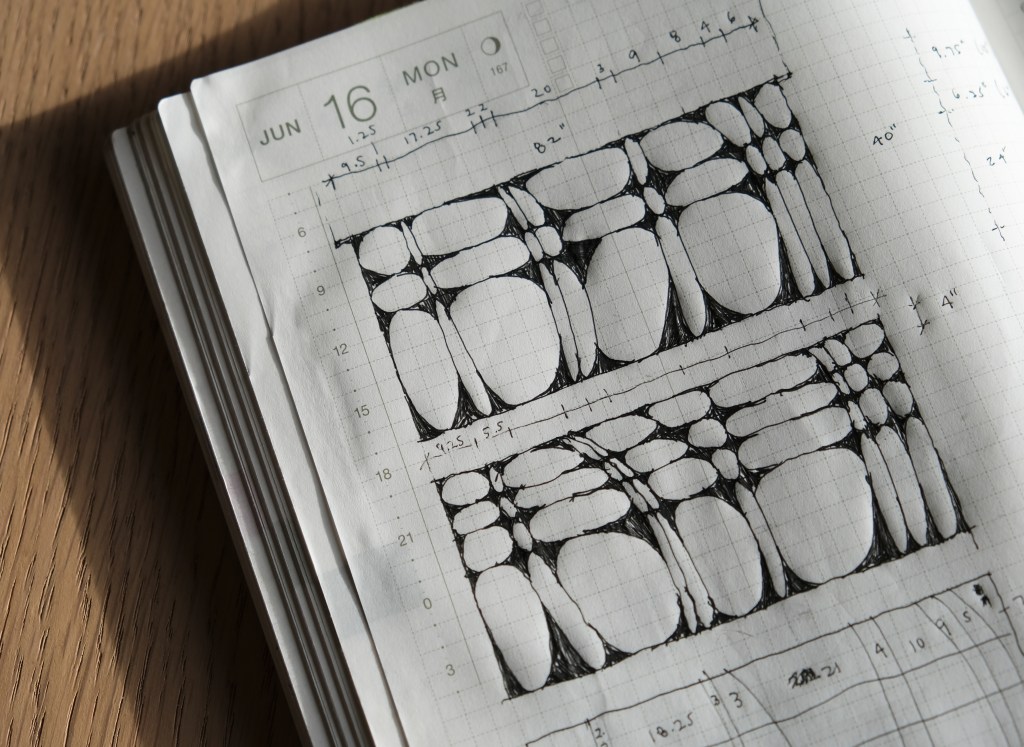 JUN 16 MON 月 167
9.5 1.25 17.25 2 2 20 3 9 8 4 6
82"
40"
9.75"
6.25"
24"
6
9
12
15
18
21
0
3
4"
9.25 5.5
18.25 3 3 21 4 10 9 5